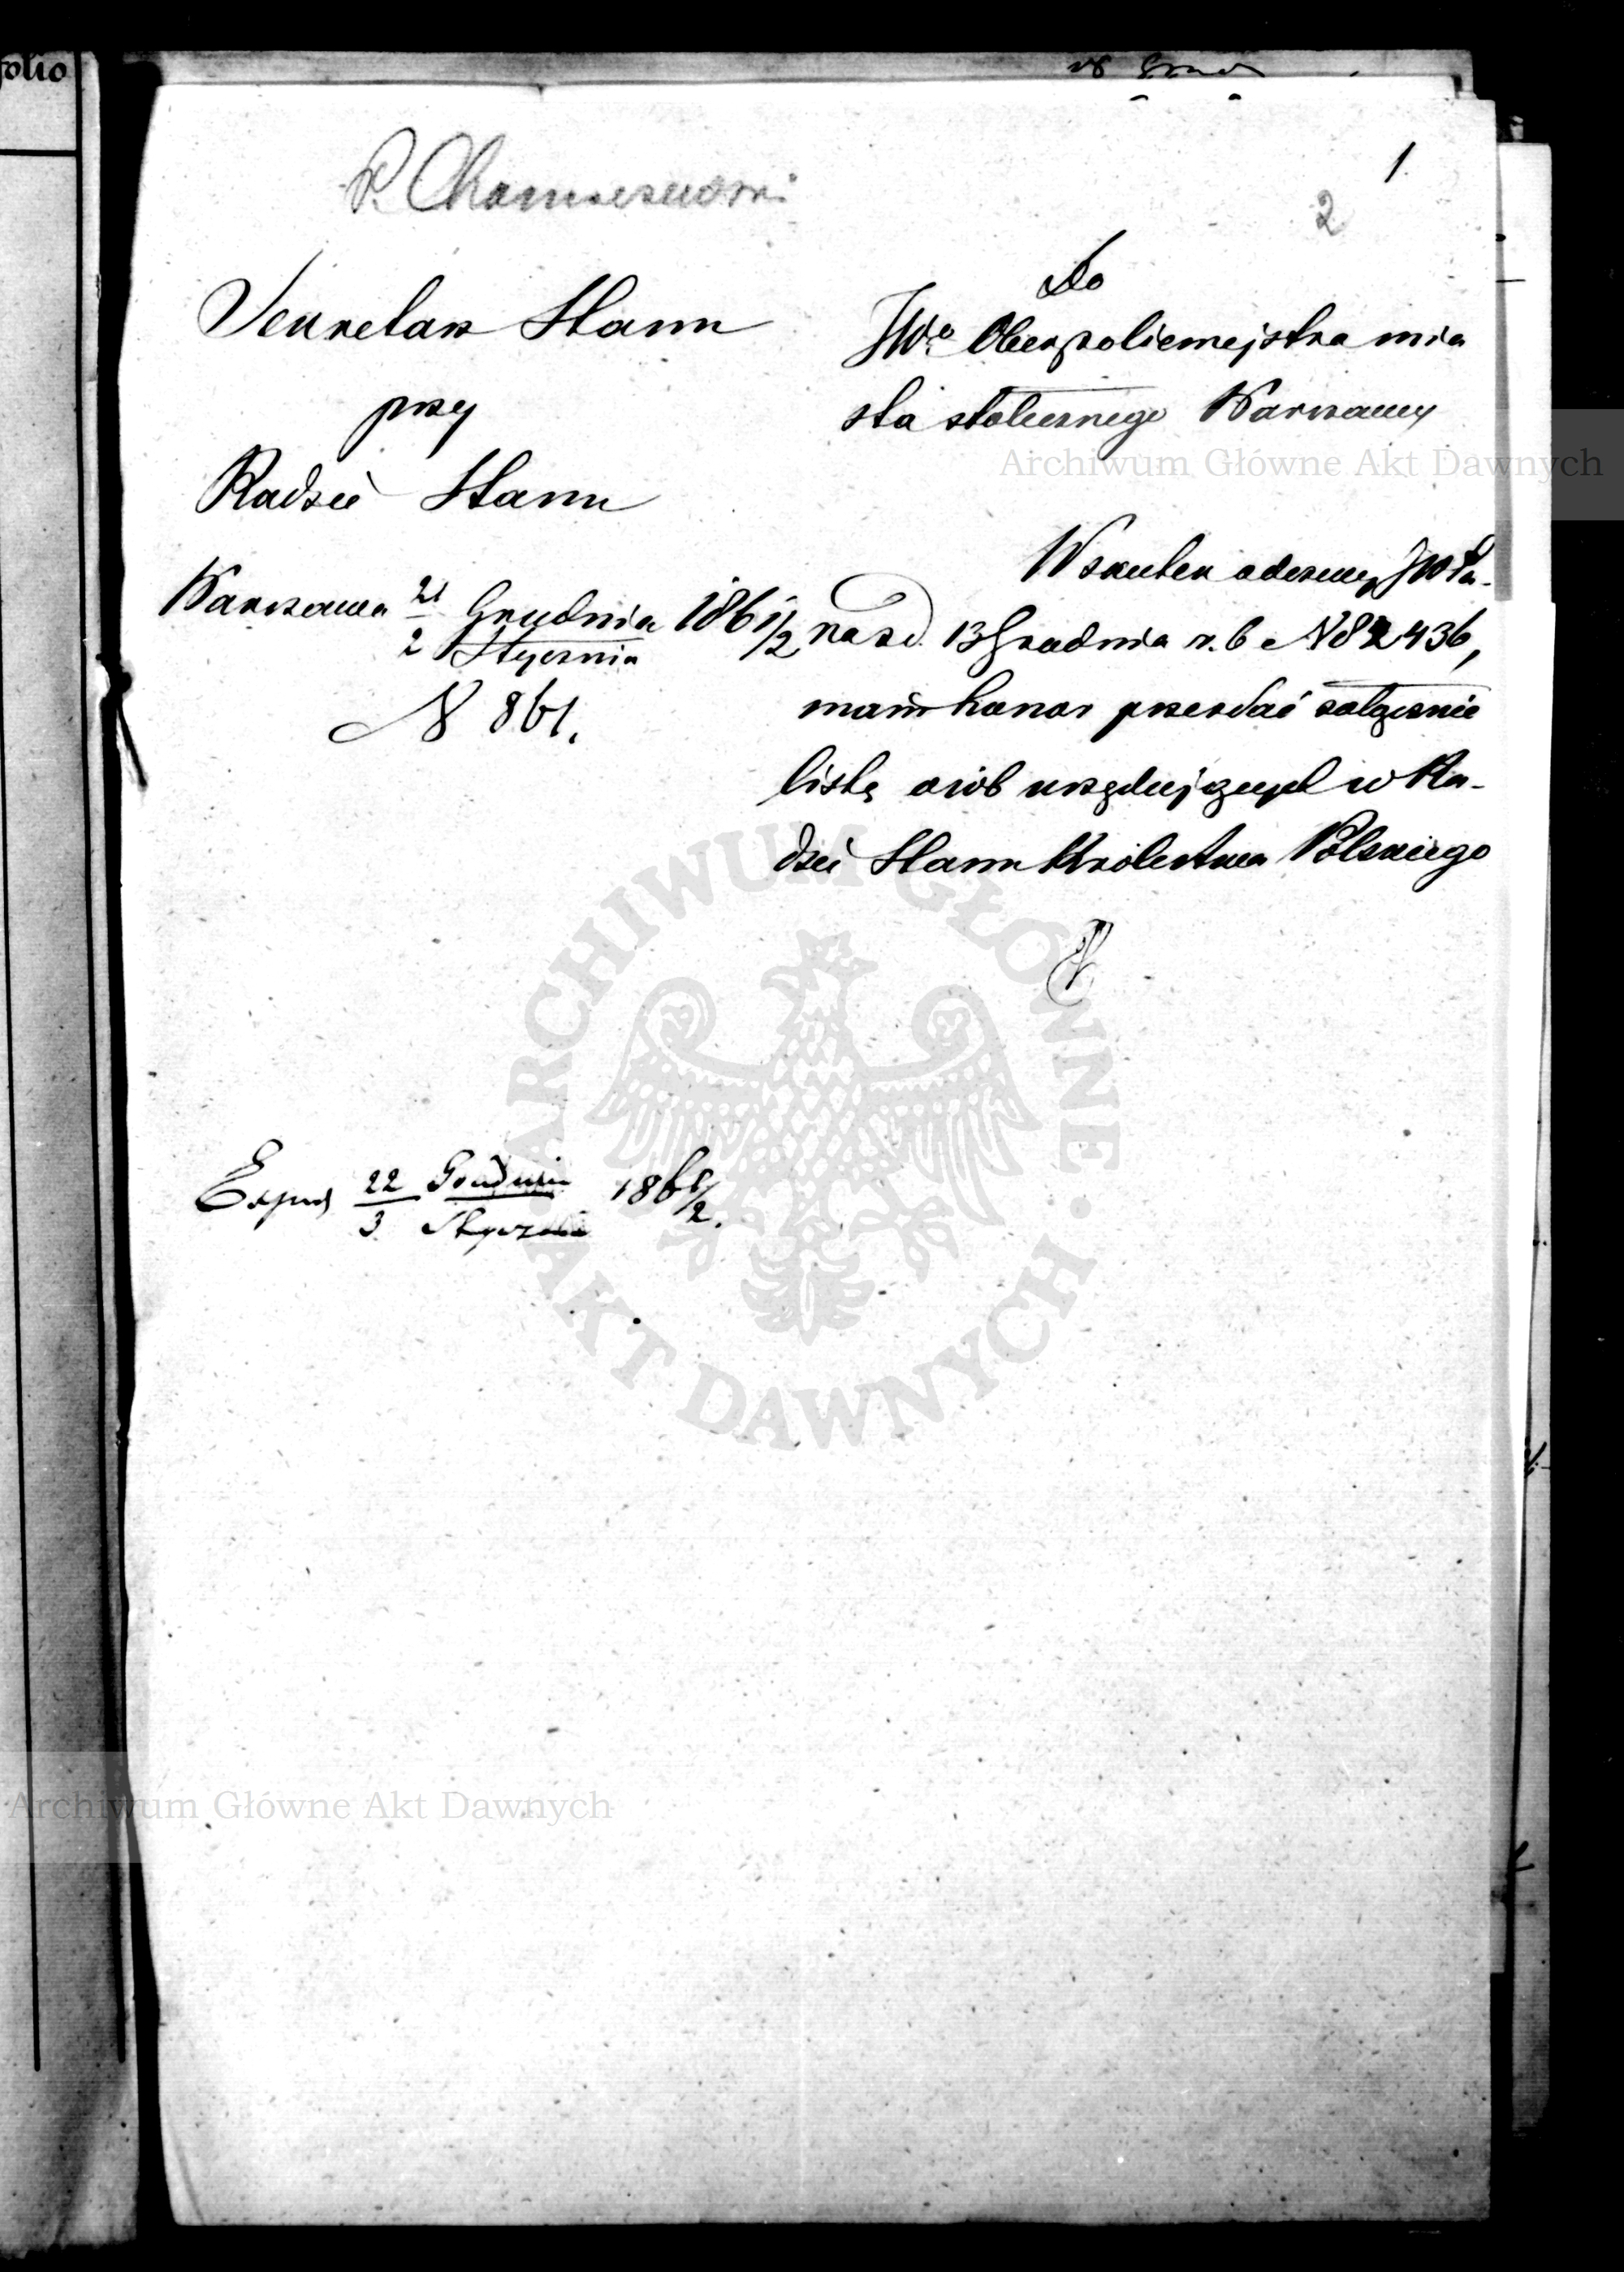 folio
1.
2
Sekretarz Stanu
przy
Radzie Stanu
Warszawa 21/2 Grudnia/Stycznia 1861/2
N 861.
Do
JWo Oberpolicmejstra mia
sta stołecznego Warszawy
Wskutek odezwy JWPa-
na z d. 13 Grudnia r. b. N 82436,
mam honor przesłać załącznie
listę osób urzędujących w Ra-
dzie Stanu Królestwa Polskiego
Exped 22/3 Grudnia/Stycznia 1861/2.
Archiwum Główne Akt Dawnych
ARCHIWUM GŁÓWNE · AKT DAWNYCH ·
Archiwum Główne Akt Dawnych